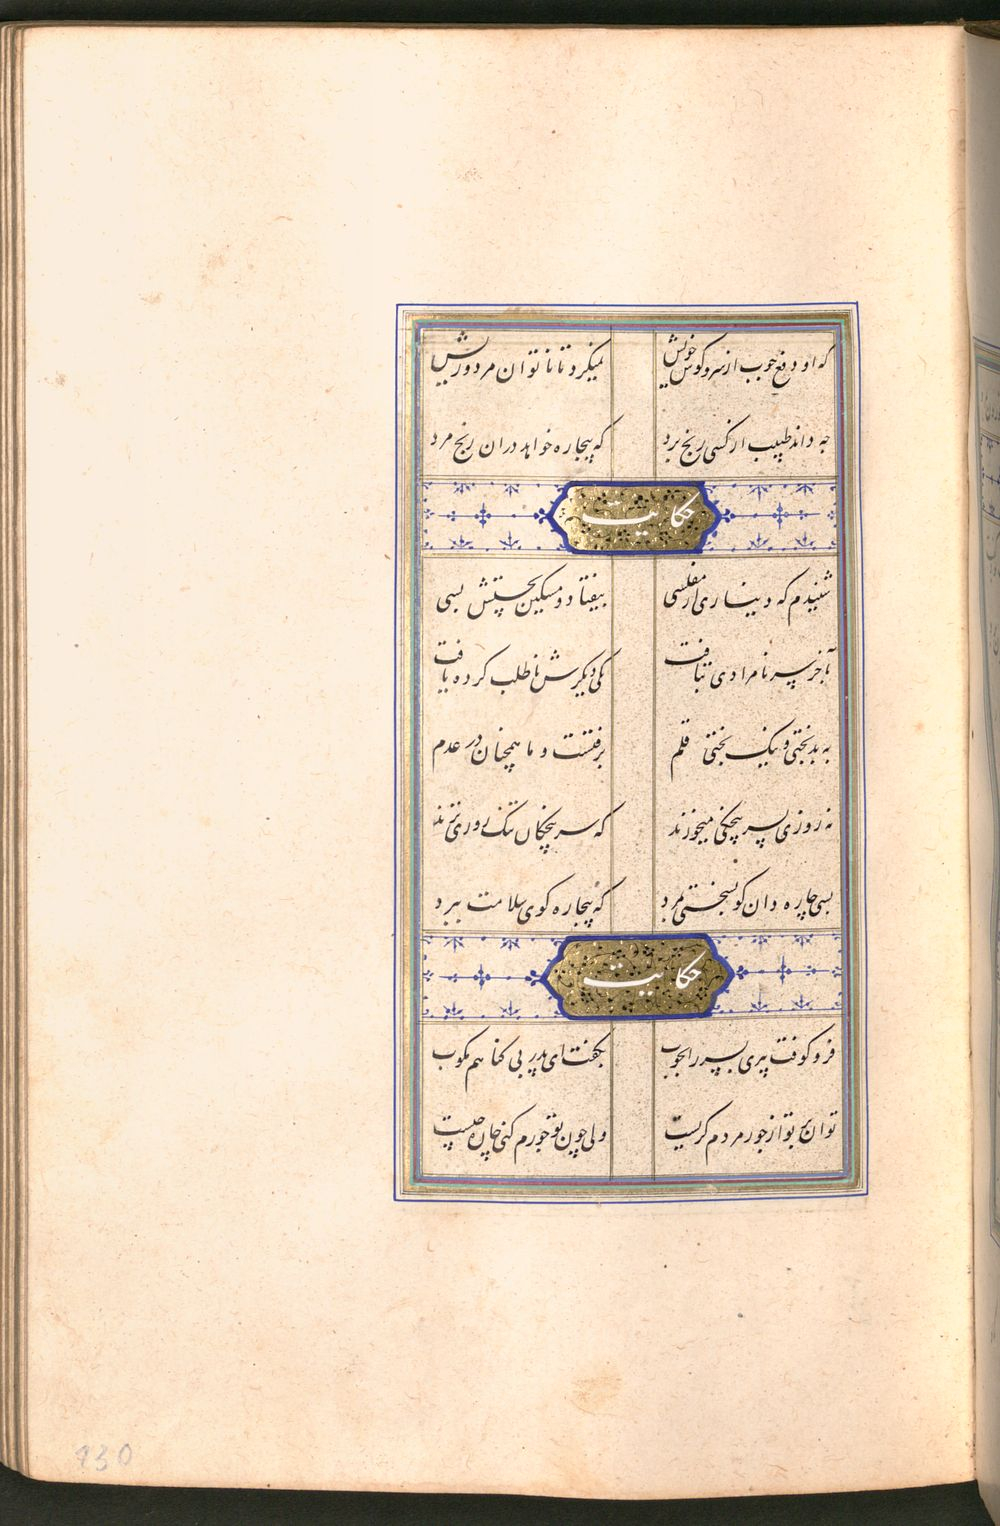 که او دفع چوب از سر و کون خویش
نمیکرد تا ناتوان مرد و ریش
چه داند طبیب از کسی رنج برد
که بیچاره خواهد در آن رنج مرد
حکایت
شنیدم که دیناری از مفلسی
بیفتاد و مسکین بجستش بسی
بآخر سر نامرادی بتافت
یکی دیگرش ناطلب کرده یافت
به بدبختی و نیک بختی قلم
برفتست و ما همچنان در عدم
نه روزی بسر پنجگی میخورند
که سرپنجگان تنگ روزی ترند
بسی چاره دان کو بسختی بمرد
که بیچاره کوی سلامت ببرد
حکایت
فرو کوفت پیری پسر را بچوب
بگفت ای پدر بی کناهم مکوب
توان بر تو از جور مردم کریست
ولی چون تو جورم کنی چاره چیست
130